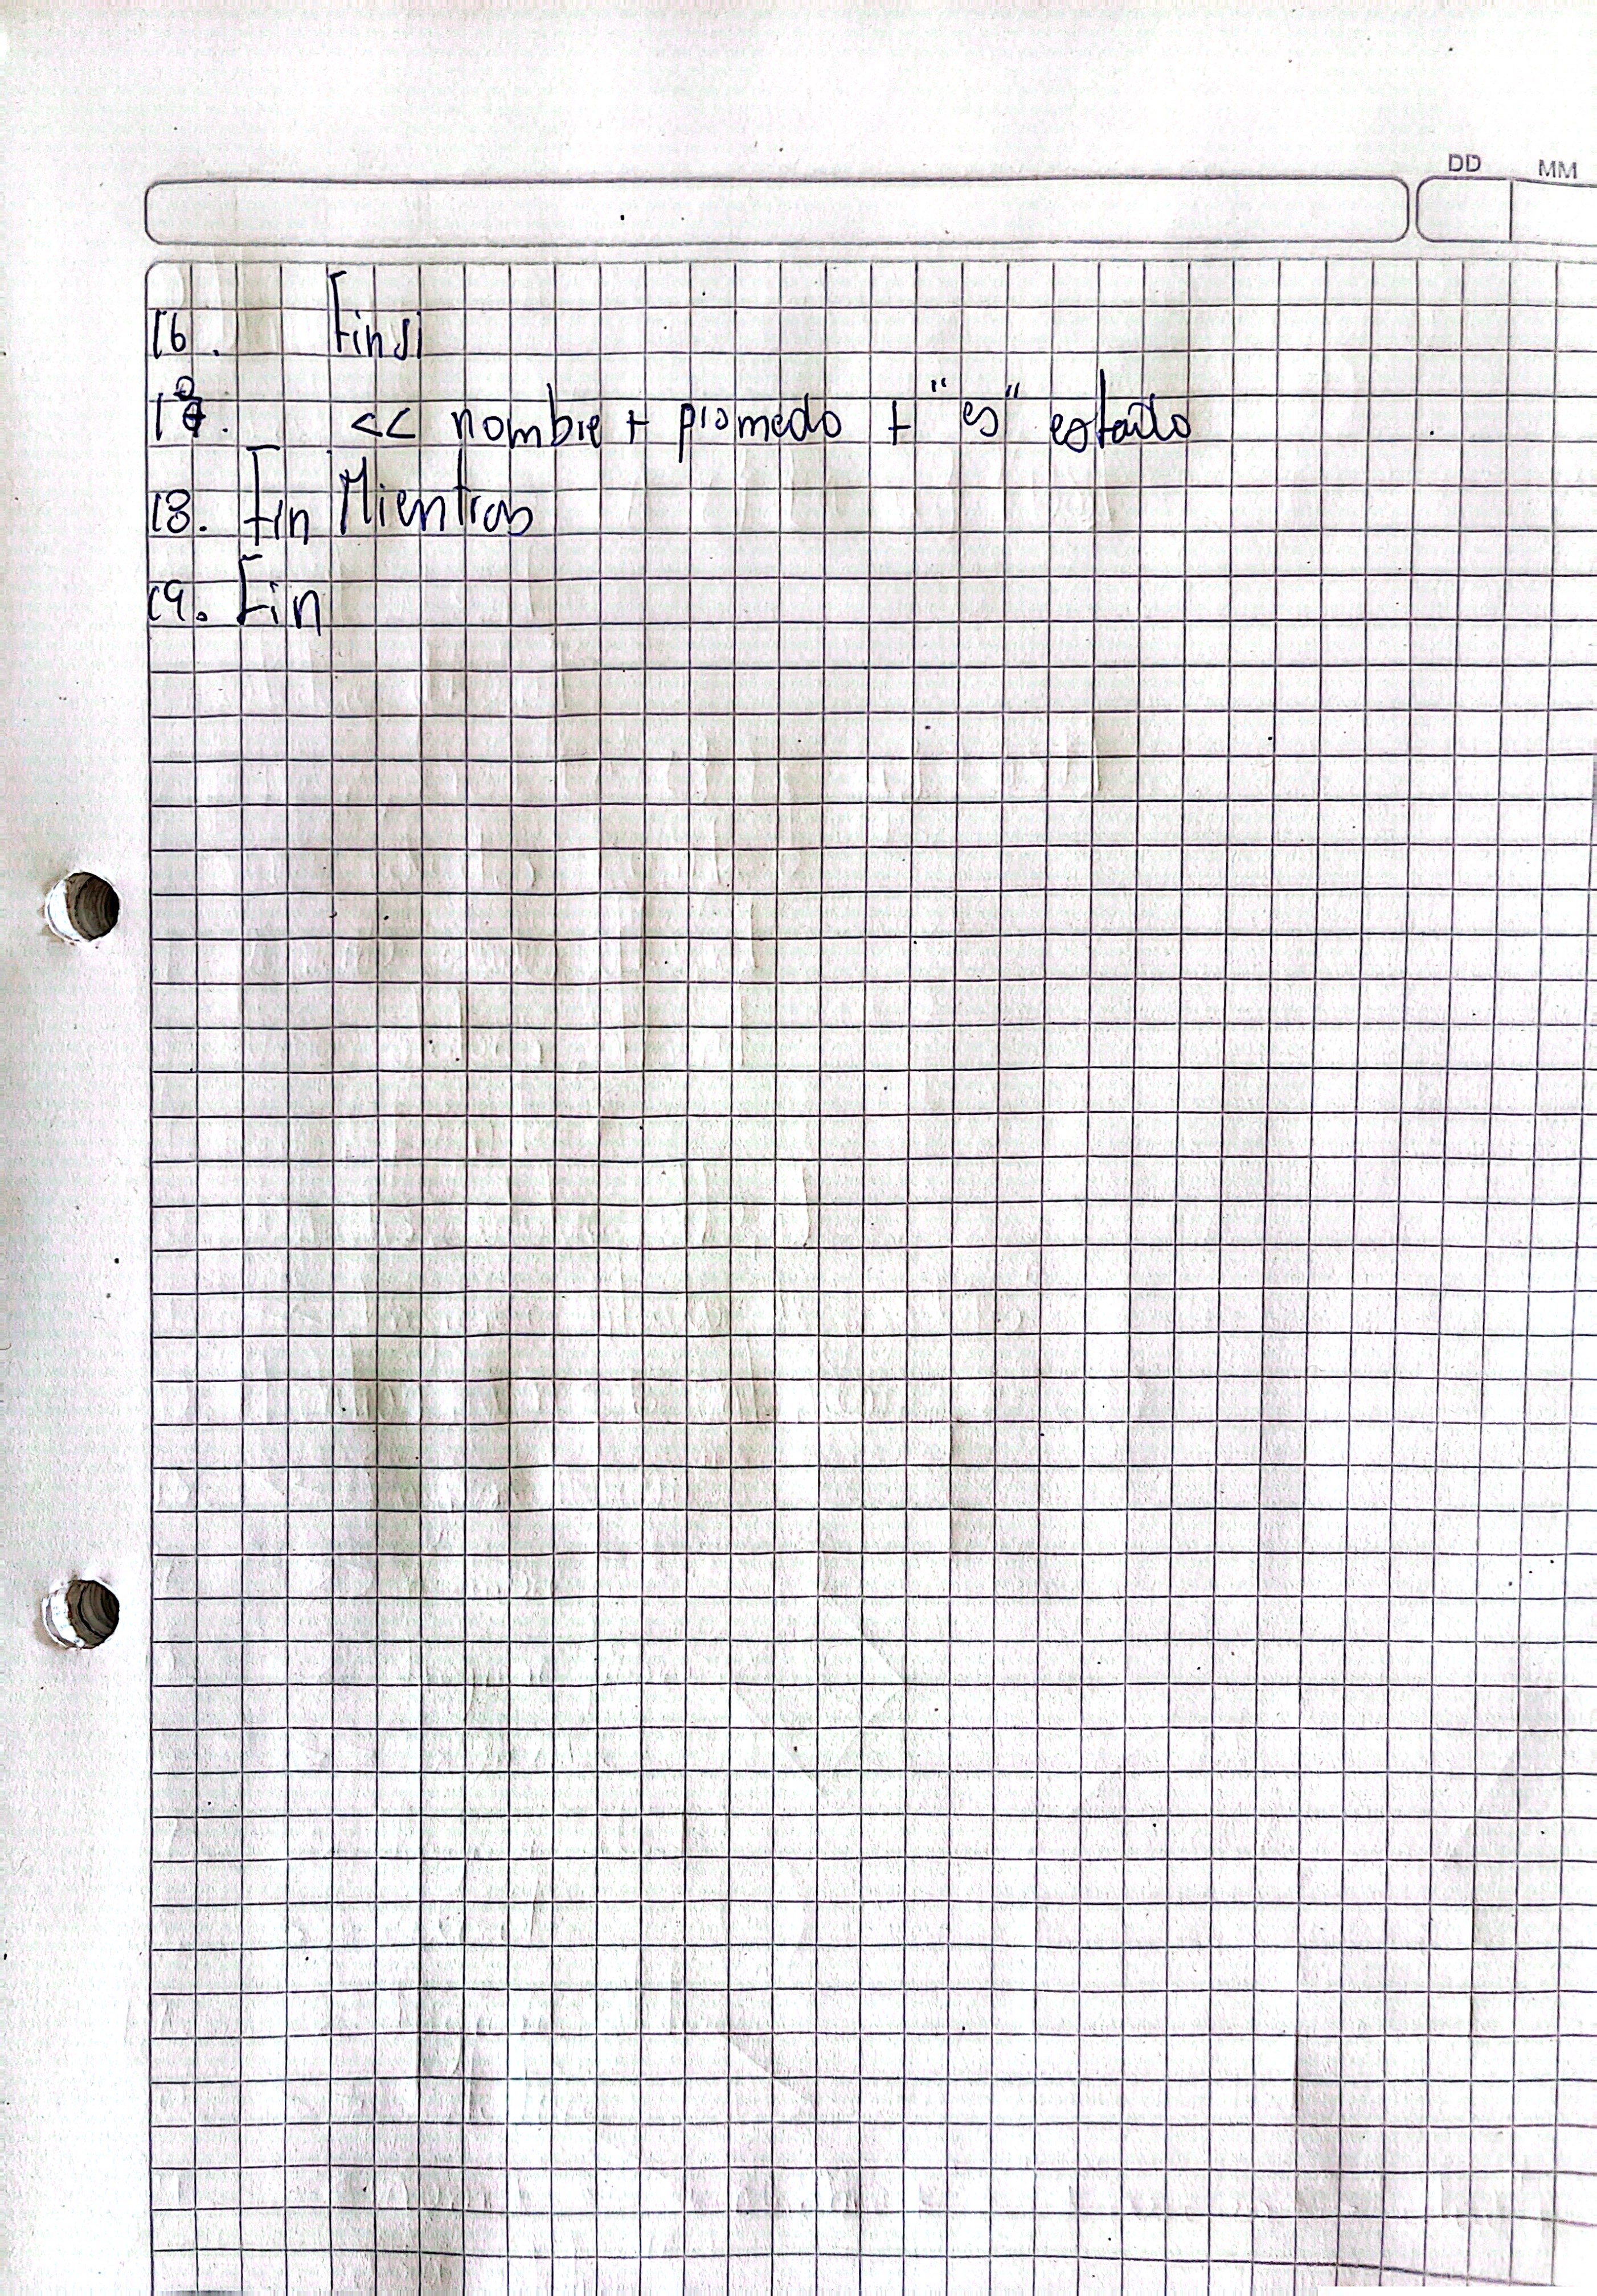 DD MM
16. Finsi
17. << nombre + promedo + "es" estado
18. Fin Mientras
19. Fin